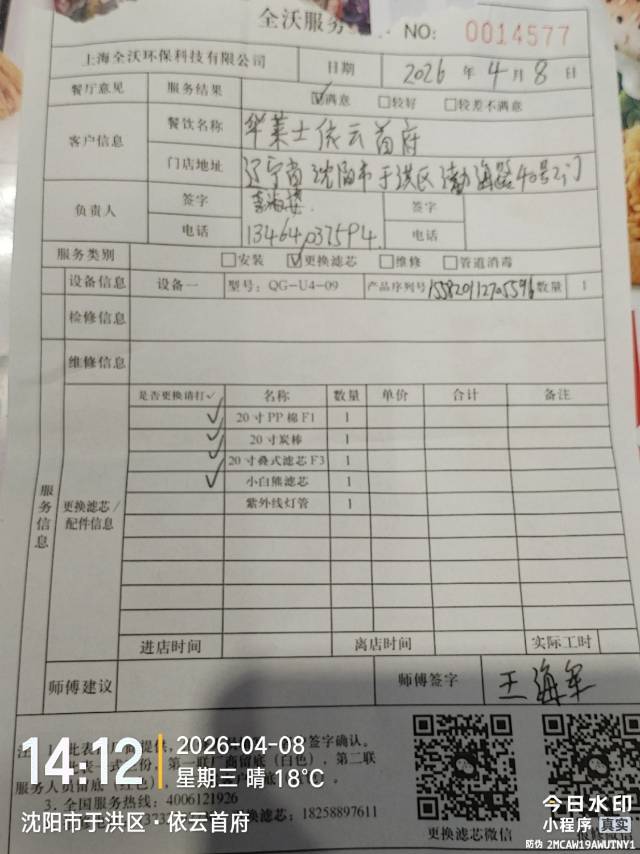 全沃服务
NO: 0014577
上海全沃环保科技有限公司 日期 2026 年 4 月 8 日
餐厅意见 服务结果 ☑满意 □较好 □较差不满意
客户信息 餐饮名称 华莱士依云首府
门店地址 辽宁省沈阳市于洪区渤海路40号2门
负责人 签字 签字
电话 13464037594 电话
服务类别 □安装 ☑更换滤芯 □维修 □管道消毒
设备信息 设备一 型号: QG-U4-09 产品序列号 155820112705596 数量 1
检修信息
维修信息
服务信息
更换滤芯/配件信息
是否更换请打✓ 名称 数量 单价 合计 备注
✓ 20寸PP棉F1 1
✓ 20寸炭棒 1
✓ 20寸叠式滤芯F3 1
✓ 小白熊滤芯 1
紫外线灯管 1
进店时间 离店时间 实际工时
师傅建议 师傅签字 王海军
签字确认。
第一联厂商留底(白色)、第二联
服务人员留底(红色)、
3、全国服务热线: 4006121926
更换滤芯: 18258897611
更换滤芯微信
14:12
2026-04-08
星期三 晴 18℃
沈阳市于洪区·依云首府
今日水印
小程序 真实
防伪 2MCAW19AWUTNY1